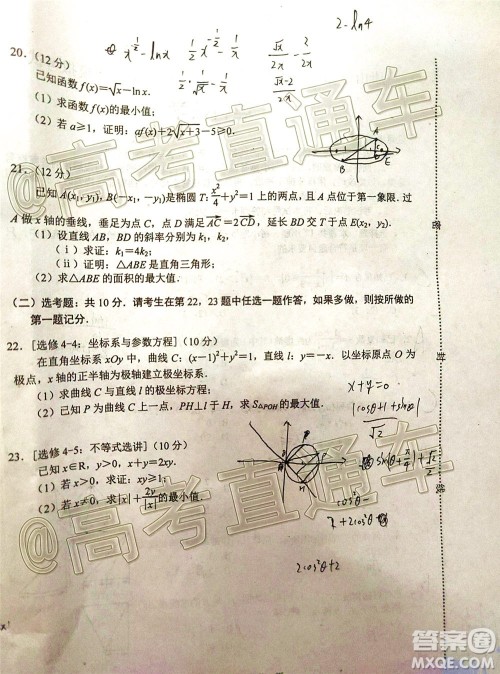 2-ln4
20. (12 分)
已知函数 f(x)=√x-lnx.
(1) 求函数 f(x)的最小值;
(2) 若 a≥1, 证明: af(x)+2√(x+3)-5≥0.
x^(1/2)-lnx
1/2 x^(-1/2)-1/x
√x/2x - 2/2x
1/2 · 1/√x - 1/x
√x-2/2x
21. (12 分)
已知 A(x₁, y₁), B(-x₁, -y₁)是椭圆 T: x²/4+y²=1 上的两点, 且 A 点位于第一象限. 过
A 做 x 轴的垂线, 垂足为点 C, 点 D 满足AC=2CD, 延长 BD 交 T 于点 E(x₂, y₂).
(1) 设直线 AB, BD 的斜率分别为 k₁, k₂,
(i) 求证: k₁=4k₂;
(ii) 证明: △ABE 是直角三角形;
(2) 求△ABE 的面积的最大值.
(二) 选考题: 共 10 分. 请考生在第 22, 23 题中任选一题作答, 如果多做, 则按所做的
第一题记分.
22. [选修 4-4: 坐标系与参数方程] (10 分)
在直角坐标系 xOy 中, 曲线 C: (x-1)²+y²=1, 直线 l: y=-x. 以坐标原点 O 为
极点, x 轴的正半轴为极轴建立极坐标系.
(1) 求曲线 C 与直线 l 的极坐标方程;
(2) 已知 P 为曲线 C 上一点, PH⊥l 于 H, 求 S△POH 的最大值.
x+y=0
|cosθ+1+sinθ|
√2
23. [选修 4-5: 不等式选讲] (10 分)
已知 x∈R, y>0, x+y=2xy.
(1) 若 x>0, 求证: y>1/2;
(2) 若 x≠0, 求|x|+2y/|x|的最小值.
2cos²θ+2
密
封
线
@高考直通车
@高考直通车
@高考直通车
答案圈
MXQE.COM